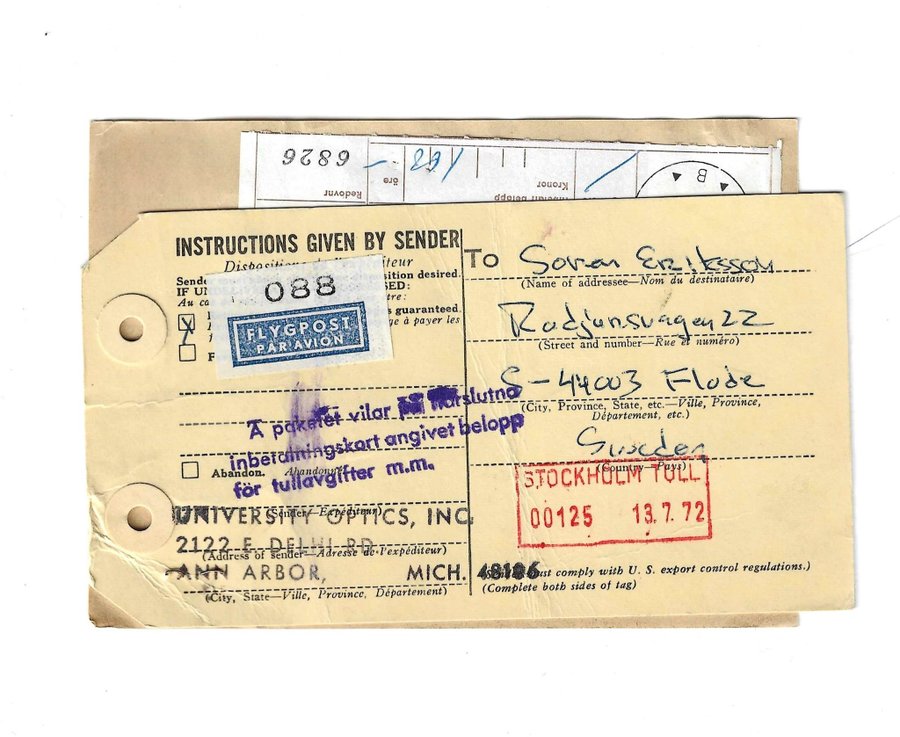 6826
öre
Kronor
Redovnr
B
INSTRUCTIONS GIVEN BY SENDER
088
FLYGPOST
PAR AVION
sition desired.
s guaranteed.
ge à payer les
Abandon.
Å paketet vilar på
inbetalningskort angivet belopp
för tullavgifter m.m.
(Sender—Expéditeur)
UNIVERSITY OPTICS, INC.
2122 E. DELHI RD.
(Address of sender—Adresse de l'expéditeur)
ANN ARBOR, MICH. 48106
(City, State—Ville, Province, Département)
To Soren Eriksson
(Name of addressee—Nom du destinataire)
Radjursvagen 22
(Street and number—Rue et numéro)
S-44003 Floda
(City, Province, State, etc.—Ville, Province,
Département, etc.)
Sweden
(Country—Pays)
STOCKHOLM TULL
00125 13.7.72
must comply with U. S. export control regulations.)
(Complete both sides of tag)